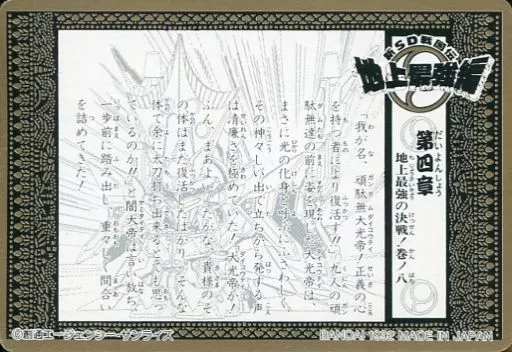 新SD戦国伝
地上最強編
第四章
地上最強の決戦!巻ノ八
「我が名、頑駄無大光帝!正義の心
を持つ者により復活す!!」九人の頑
駄無達の前に姿を現した大光帝は、
まさに光の化身と呼ぶにふさわしく、
その神々しい出で立ちから発する声
は清廉さを極めていた!「大光帝か!
ふん、まあよい…だがな、貴様のそ
の体はまだ復活したばかり…そんな
体で余に太刀打ち出来るとでも思っ
ているのか!!」と闇大帝は言い放ち、
一歩前に踏み出し、重々しく間合い
を詰めてきた!
©創通エージェンシー・サンライズ
BANDAI 1992 MADE IN JAPAN